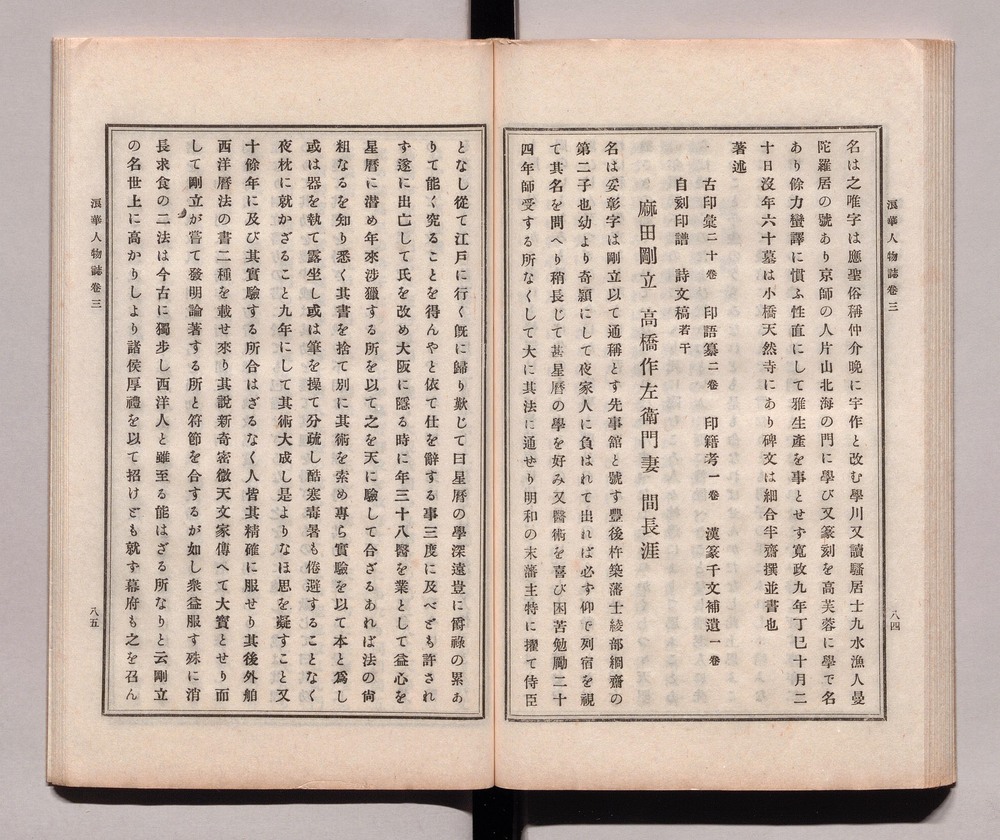 浪華人物誌卷三
八四
名は之唯字は應聖俗稱仲介晩に宇作と改む學川又讀騷居士九水漁人曼
陀羅居の號あり京師の人片山北海の門に學び又篆刻を高芙蓉に學で名
あり餘力蠻譯に慣ふ性直にして雅生產を事とせず寬政九年丁巳十月二
十日沒年六十墓は小橋天然寺にあり碑文は細合半齋撰並書也
著述
古印彙二十卷 印語纂二卷 印籍考一卷 漢篆千文補遺一卷
自刻印譜 詩文稿若干
麻田剛立 高橋作左衛門妻 間長涯
名は妥彰字は剛立以て通稱とす先事館と號す豐後杵築藩士綾部綱齋の
第二子也幼より奇穎にして夜家人に負はれて出れば必ず仰で列宿を視
て其名を問へり稍長じて甚星曆の學を好み又醫術を喜び困苦勉勵二十
四年師受する所なくして大に其法に通せり明和の末藩主特に擢て侍臣
となし從て江戶に行く旣に歸り歎じて曰星曆の學深遠豈に爵祿の累あ
りて能く究ることを得んやと依て仕を辭する事三度に及べども許され
ず遂に出亡して氏を改め大阪に隱る時に年三十八醫を業として益心を
星曆に潛め年來涉獵する所を以て之を天に驗して合ざるあれば法の尙
粗なるを知り悉く其書を捨て別に其術を索め專ら實驗を以て本と爲し
或は器を執て露坐し或は筆を操て分疏し酷寒毒暑も倦避することなく
夜枕に就かざること九年にして其術大成し是よりなほ思を凝すこと又
十餘年に及び其實驗する所合はざるなく人皆其精確に服せり其後外舶
西洋曆法の書二種を載せ來り其說新奇密微天文家傳へて大寶とせり而
して剛立が嘗て發明論著する所と符節を合するが如し衆益服す殊に消
長求食の二法は今古に獨步し西洋人と雖至る能はざる所なりと云剛立
の名世上に高かりしより諸侯厚禮を以て招けども就す幕府も之を召ん
浪華人物誌卷三
八五